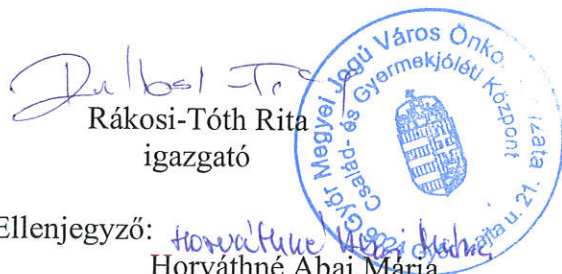 Rákosi-Tóth Rita
igazgató
Győr Megyei Jogú Város Önko
Család- és Gyermekjóléti Központ
9024 Győr
u. 21.
Ellenjegyző: Horváthné Abai Mária
Horváthné Abai Mária